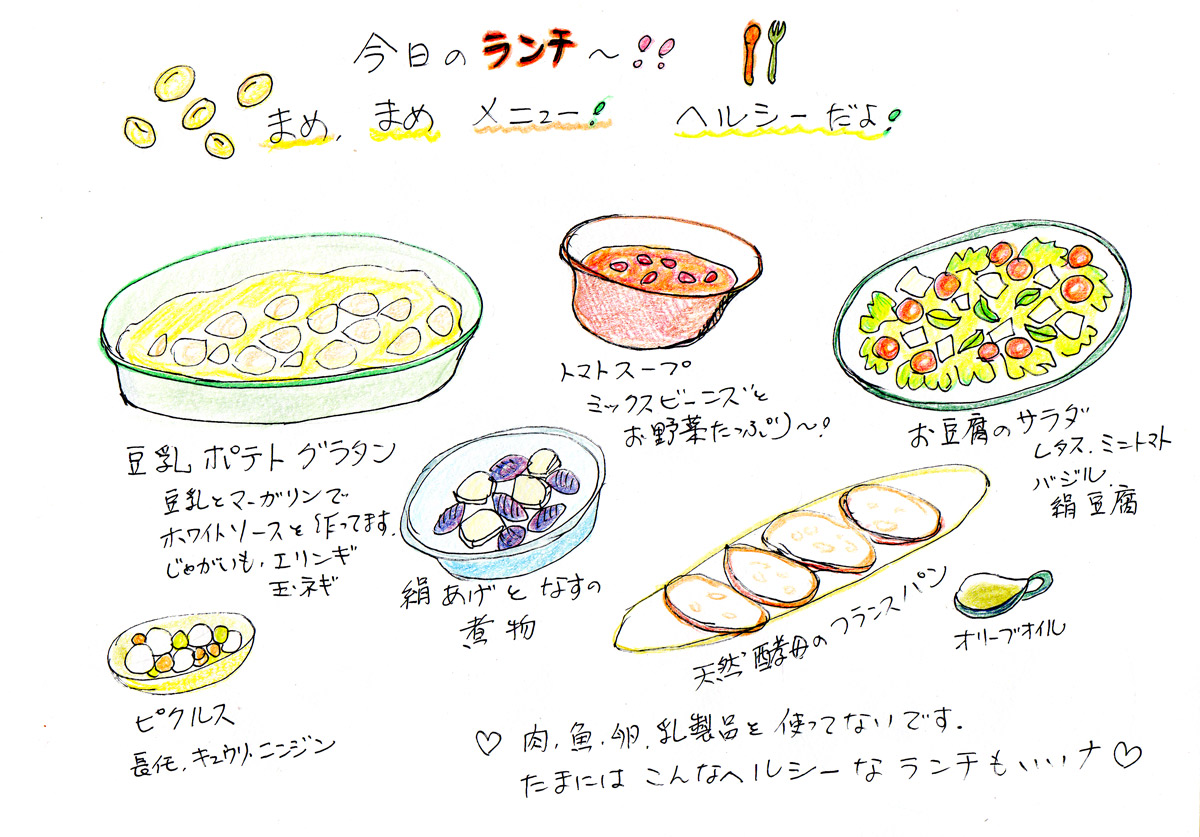 今日のランチ〜!!
まめ,まめ メニュー! ヘルシーだよ!
豆乳ポテトグラタン
豆乳とマーガリンで
ホワイトソースを作ってます.
じゃがいも,エリンギ
玉ネギ
トマトスープ
ミックスビーンズと
お野菜たっぷり〜!
お豆腐のサラダ
レタス.ミニトマト
バジル.
絹豆腐
絹あげとなすの
煮物
天然酵母のフランスパン
オリーブオイル
ピクルス
長イモ,キュウリ,ニンジン
♡ 肉,魚,卵,乳製品を使ってないです.
たまにはこんなヘルシーなランチもいいナ♡